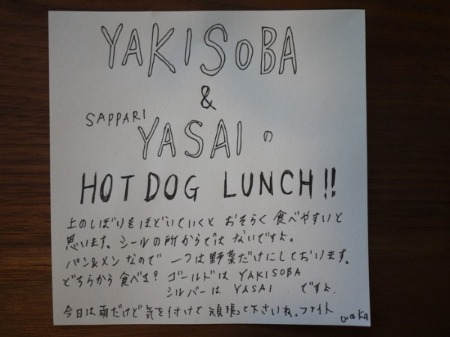 YAKISOBA
&
SAPPARI
YASAI の
HOT DOG LUNCH!!
上のしぼりをほどいていくと おそらく食べやすいと
思います。シールの所からでは ないですよ。
パン&メンなので 一つは野菜だけにしております。
どちらから食べま? ゴールドは YAKISOBA
シルバーは YASAI ですよ
今日は雨だけど気を付けて頑張って下さいね。ファイト
waka